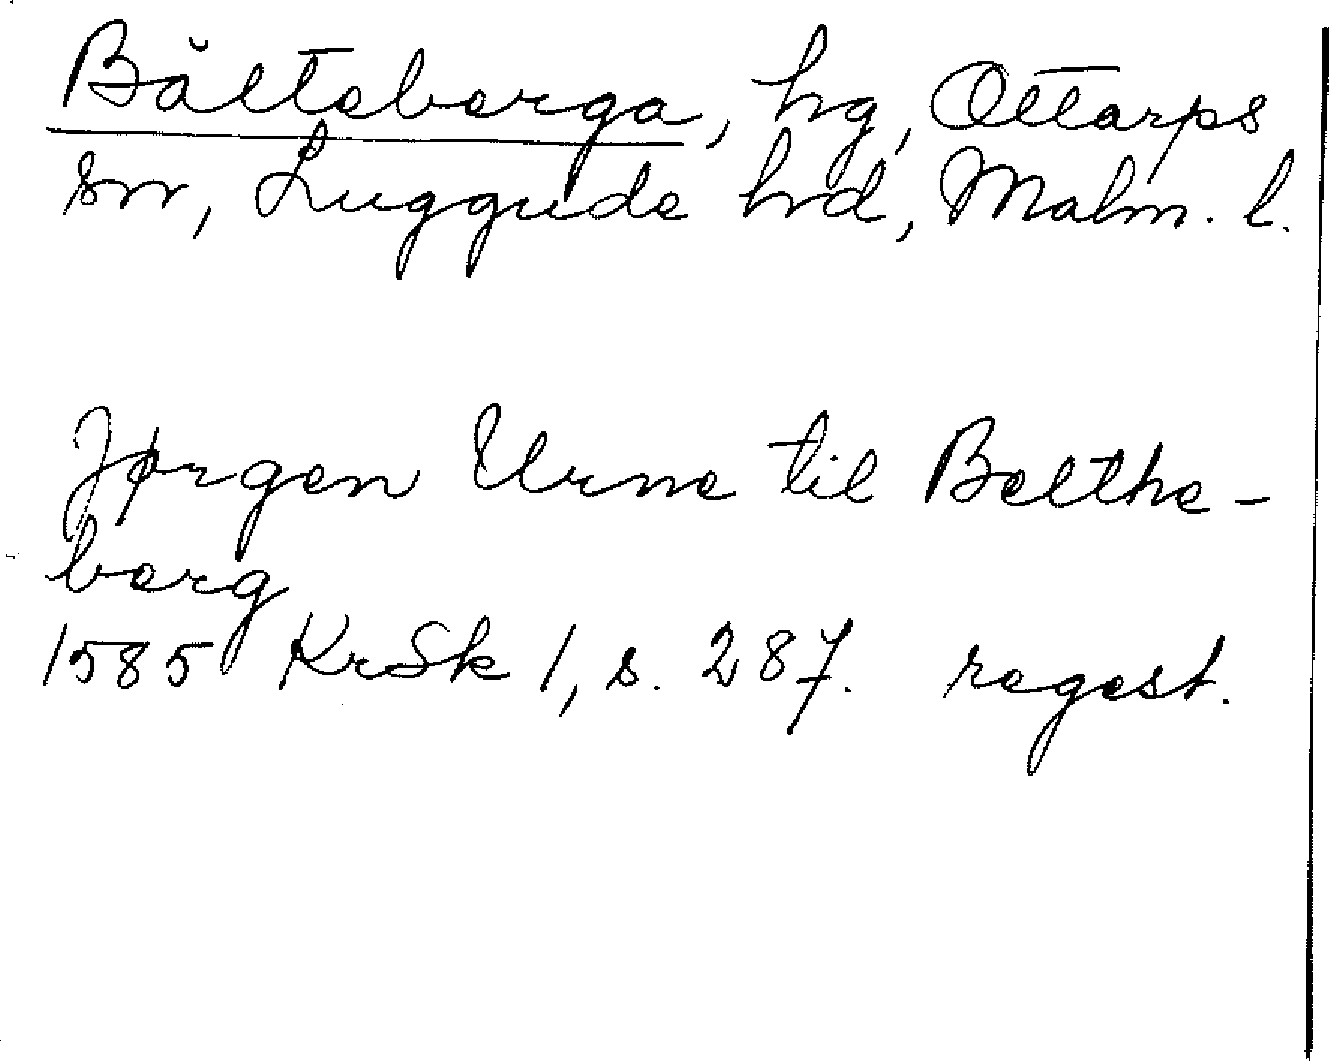 Bälteberga, hg, Ottarps
sn, Luggude hd, Malm. l.
Jørgen Urne til Belthe-
berg
1585 KrSk 1, s. 287. regest.